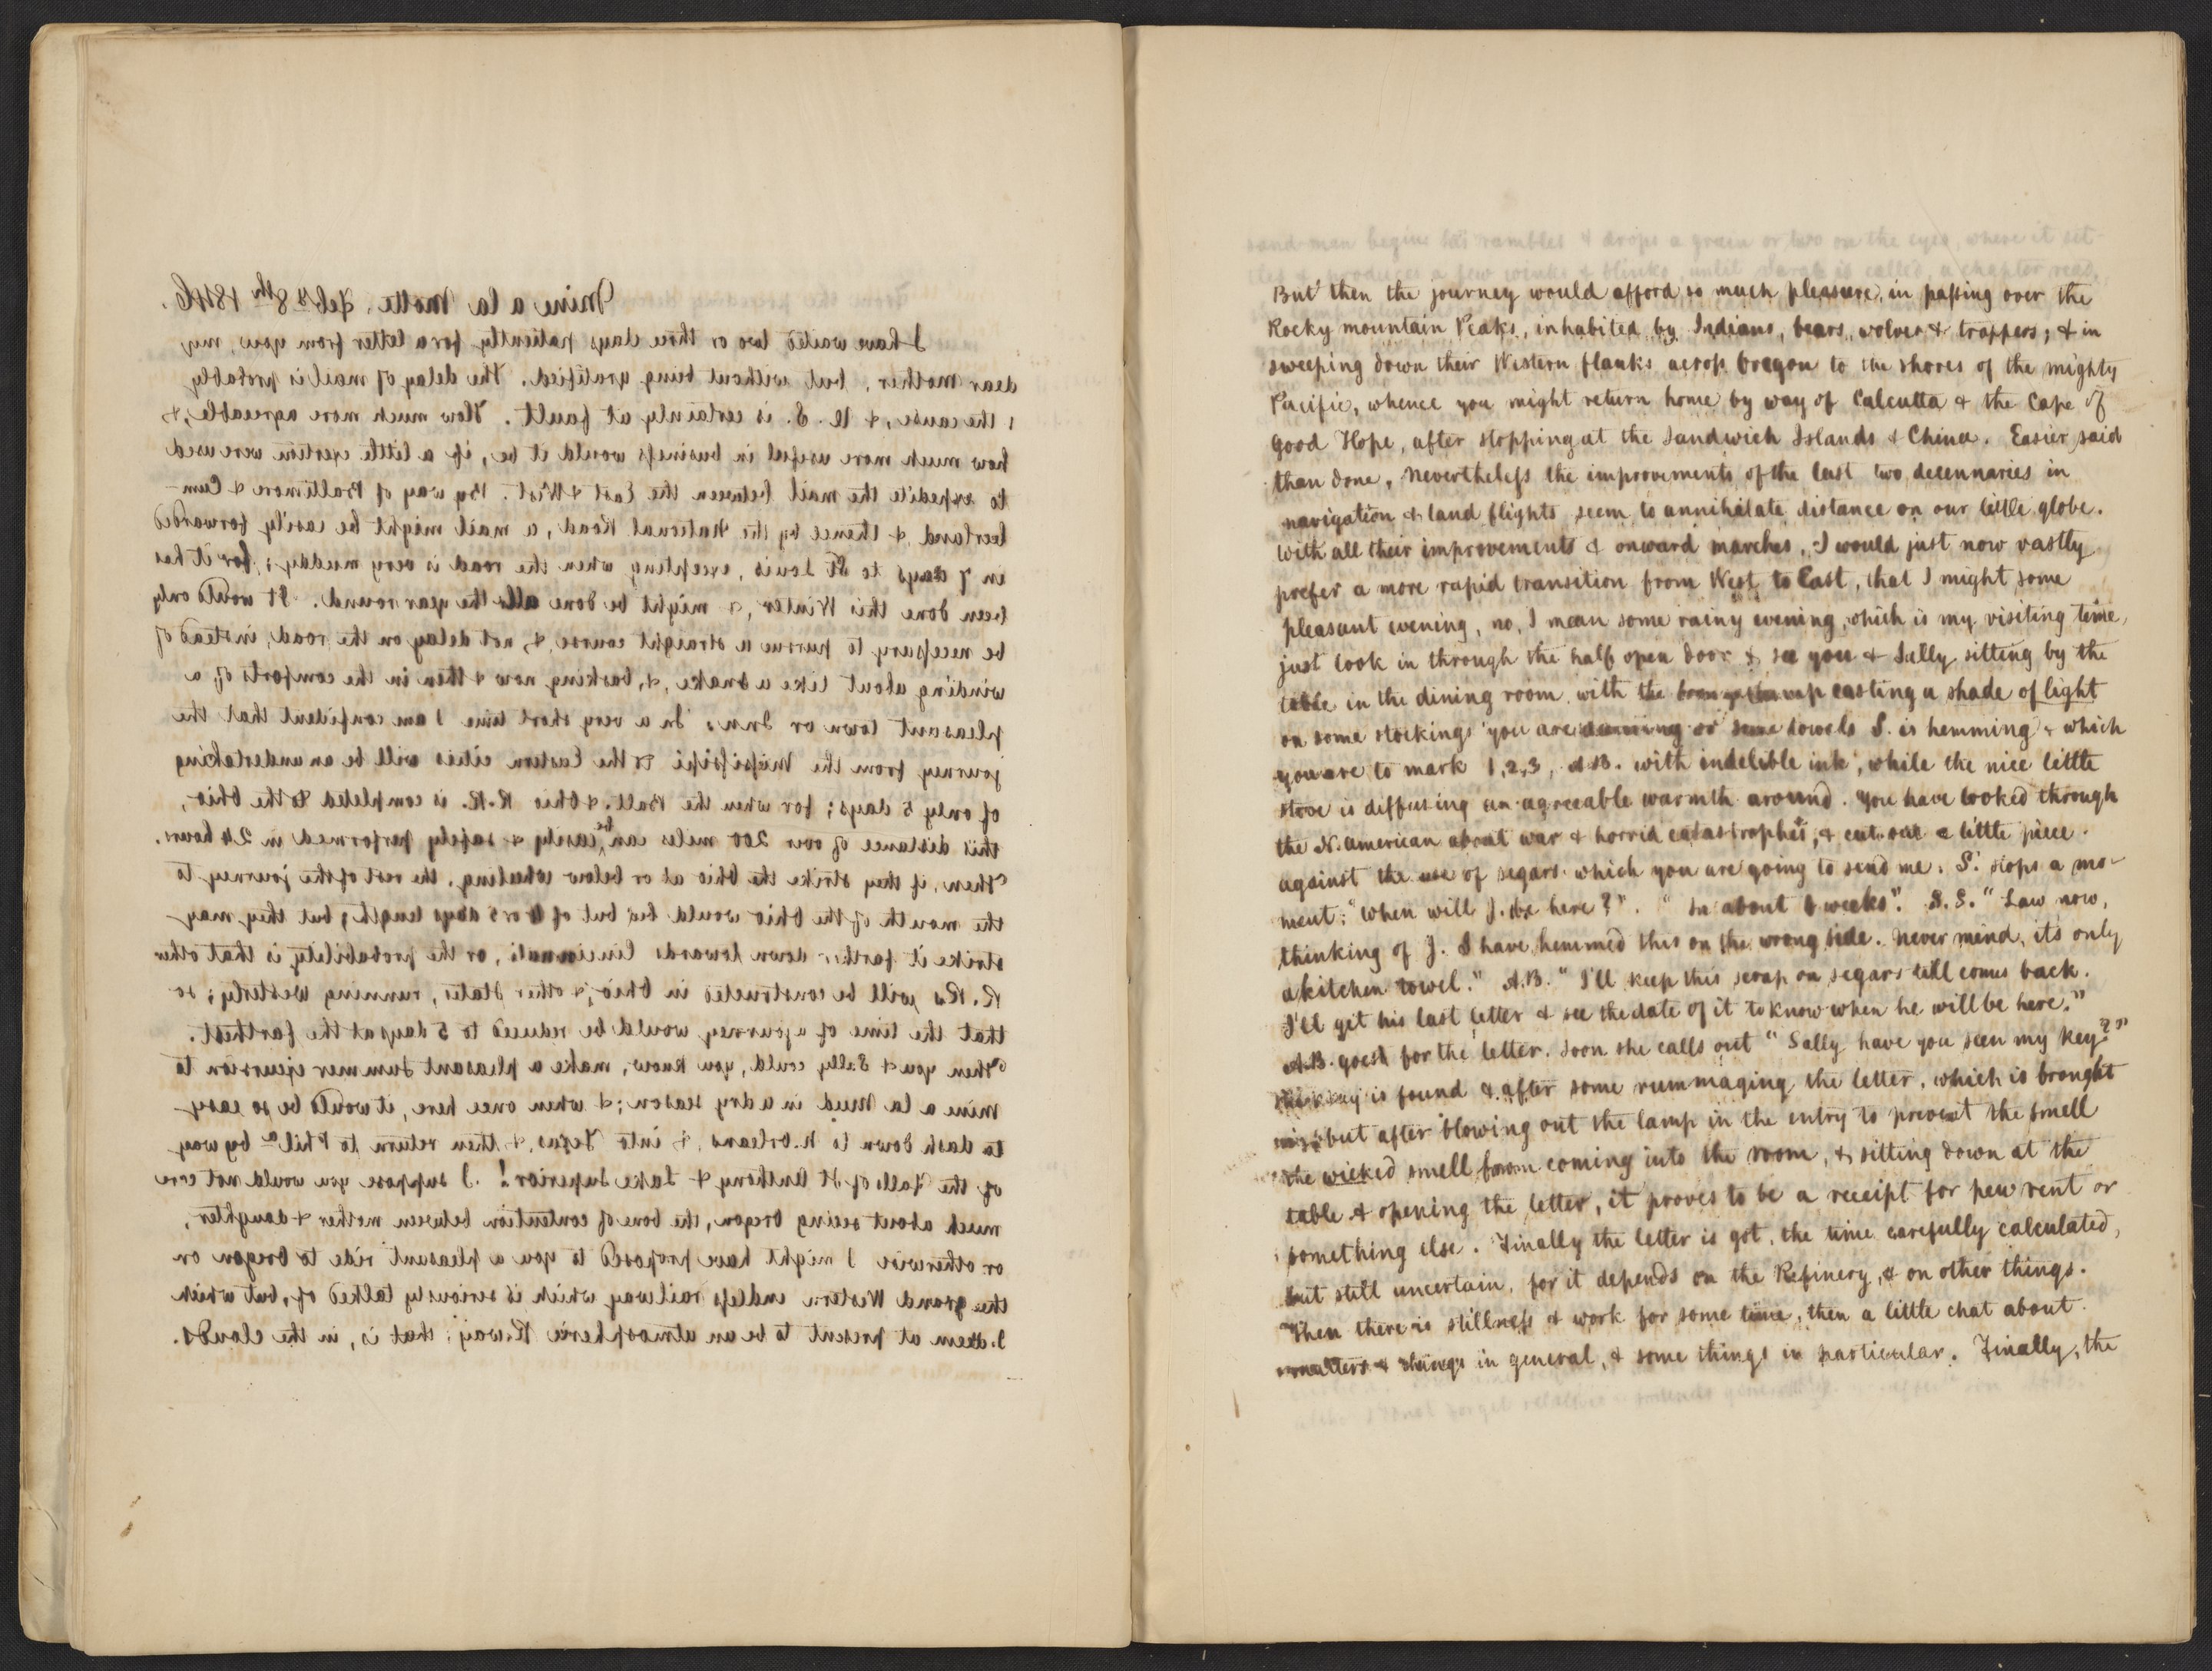 Mine a la Motte. Feby 8th 1846.
I have waited two or three days patiently for a letter from you, my
dear mother, but without being gratified. The delay of mail is probably
the cause, & U. S. is certainly at fault. How much more agreeable, &
how much more useful in business would it be, if a little exertion were used
to expedite the mail between the East & West. By way of Baltimore & Cum-
berland & thence by the National Road, a mail might be easily forwarded
in 7 days to St Louis, excepting when the road is very muddy; for it has
been done this Winter, & might be done all the year round. It would only
be necessary to pursue a straight course, & not delay on the road, instead of
winding about like a snake, & basking now & then in the comforts of a
pleasant town or Inn. In a very short time I am confident that the
journey from the Mississippi to the Eastern cities will be an undertaking
of only 5 days; for when the Balt. & Ohio R.R. is completed to the Ohio,
this distance of over 200 miles can be easily & safely performed in 24 hours.
Then, if they strike the Ohio at or below Wheeling, the rest of the journey to
the mouth of the Ohio would be but of 4 or 5 days length; but they may
strike it farther down towards Cincinnati, or the probability is that other
R. Rs will be constructed in Ohio, & other States, running Westerly; so
that the time of a journey would be reduced to 5 days at the farthest.
Then you & Sally could, you know, make a pleasant summer excursion to
Mine a la Mud in a dry season; & when once here, it would be so easy
to dash down to N. Orleans, & into Texas, & then return to Phila by way
of the Falls of St Anthony & Lake Superior! I suppose you would not care
much about seeing Oregon, the bone of contention between mother & daughter,
or otherwise I might have proposed to you a pleasant ride to Oregon on
the grand Western endless railway which is seriously talked of, but which
I deem at present to be an atmospheric R.way; that is, in the clouds.
sand-man begins his rambles & drops a grain or two on the eyes, where it set-
tles & produces a few winks & blinks, until Sarah is called, a chapter read,
But then the journey would afford so much pleasure, in passing over the
Rocky mountain Peaks, inhabited by Indians, bears, wolves & trappers; & in
sweeping down their Western flanks across Oregon to the shores of the mighty
Pacific, whence you might return home by way of Calcutta & the Cape of
Good Hope, after stopping at the Sandwich Islands & China. Easier said
than done, nevertheless the improvements of the last two decennaries in
navigation & land flights seem to annihalate distance on our little globe.
With all their improvements & onward marches, I would just now vastly
prefer a more rapid transition from West to East, that I might some
pleasant evening, no, I mean some rainy evening, which is my visiting time,
just look in through the half open door & see you & Sally sitting by the
table in the dining room with the casting a shade of light
on some stockings you are darning or some towels S. is hemming & which
you are to mark 1,2,3, A.B. with indelible ink, while the nice little
stove is diffusing an agreeable warmth around. You have looked through
the N. American about war & horrid catastrophes, & cut out a little piece
against the use of segars which you are going to send me. S. stops a mo-
ment: "When will J. be here?". "In about 6 weeks". S.S. "Law now,
thinking of J. I have hemmed this on the wrong side. Never mind, its only
a kitchen towel." A.B. "I'll keep this scrap on segars till comes back.
I'll get his last letter & see the date of it to know when he will be here."
A.B. goes for the letter. Soon she calls out "Sally have you seen my key?"
The key is found & after some rummaging the letter, which is brought
but after blowing out the lamp in the entry to prevent the smell
the wicked smell from coming into the room, & sitting down at the
table & opening the letter, it proves to be a receipt for pew rent or
something else. Finally the letter is got, the time carefully calculated,
but still uncertain, for it depends on the Refinery, & on other things.
Then there is stillness & work for some time, then a little chat about
matters & things in general, & some things in particular. Finally, the